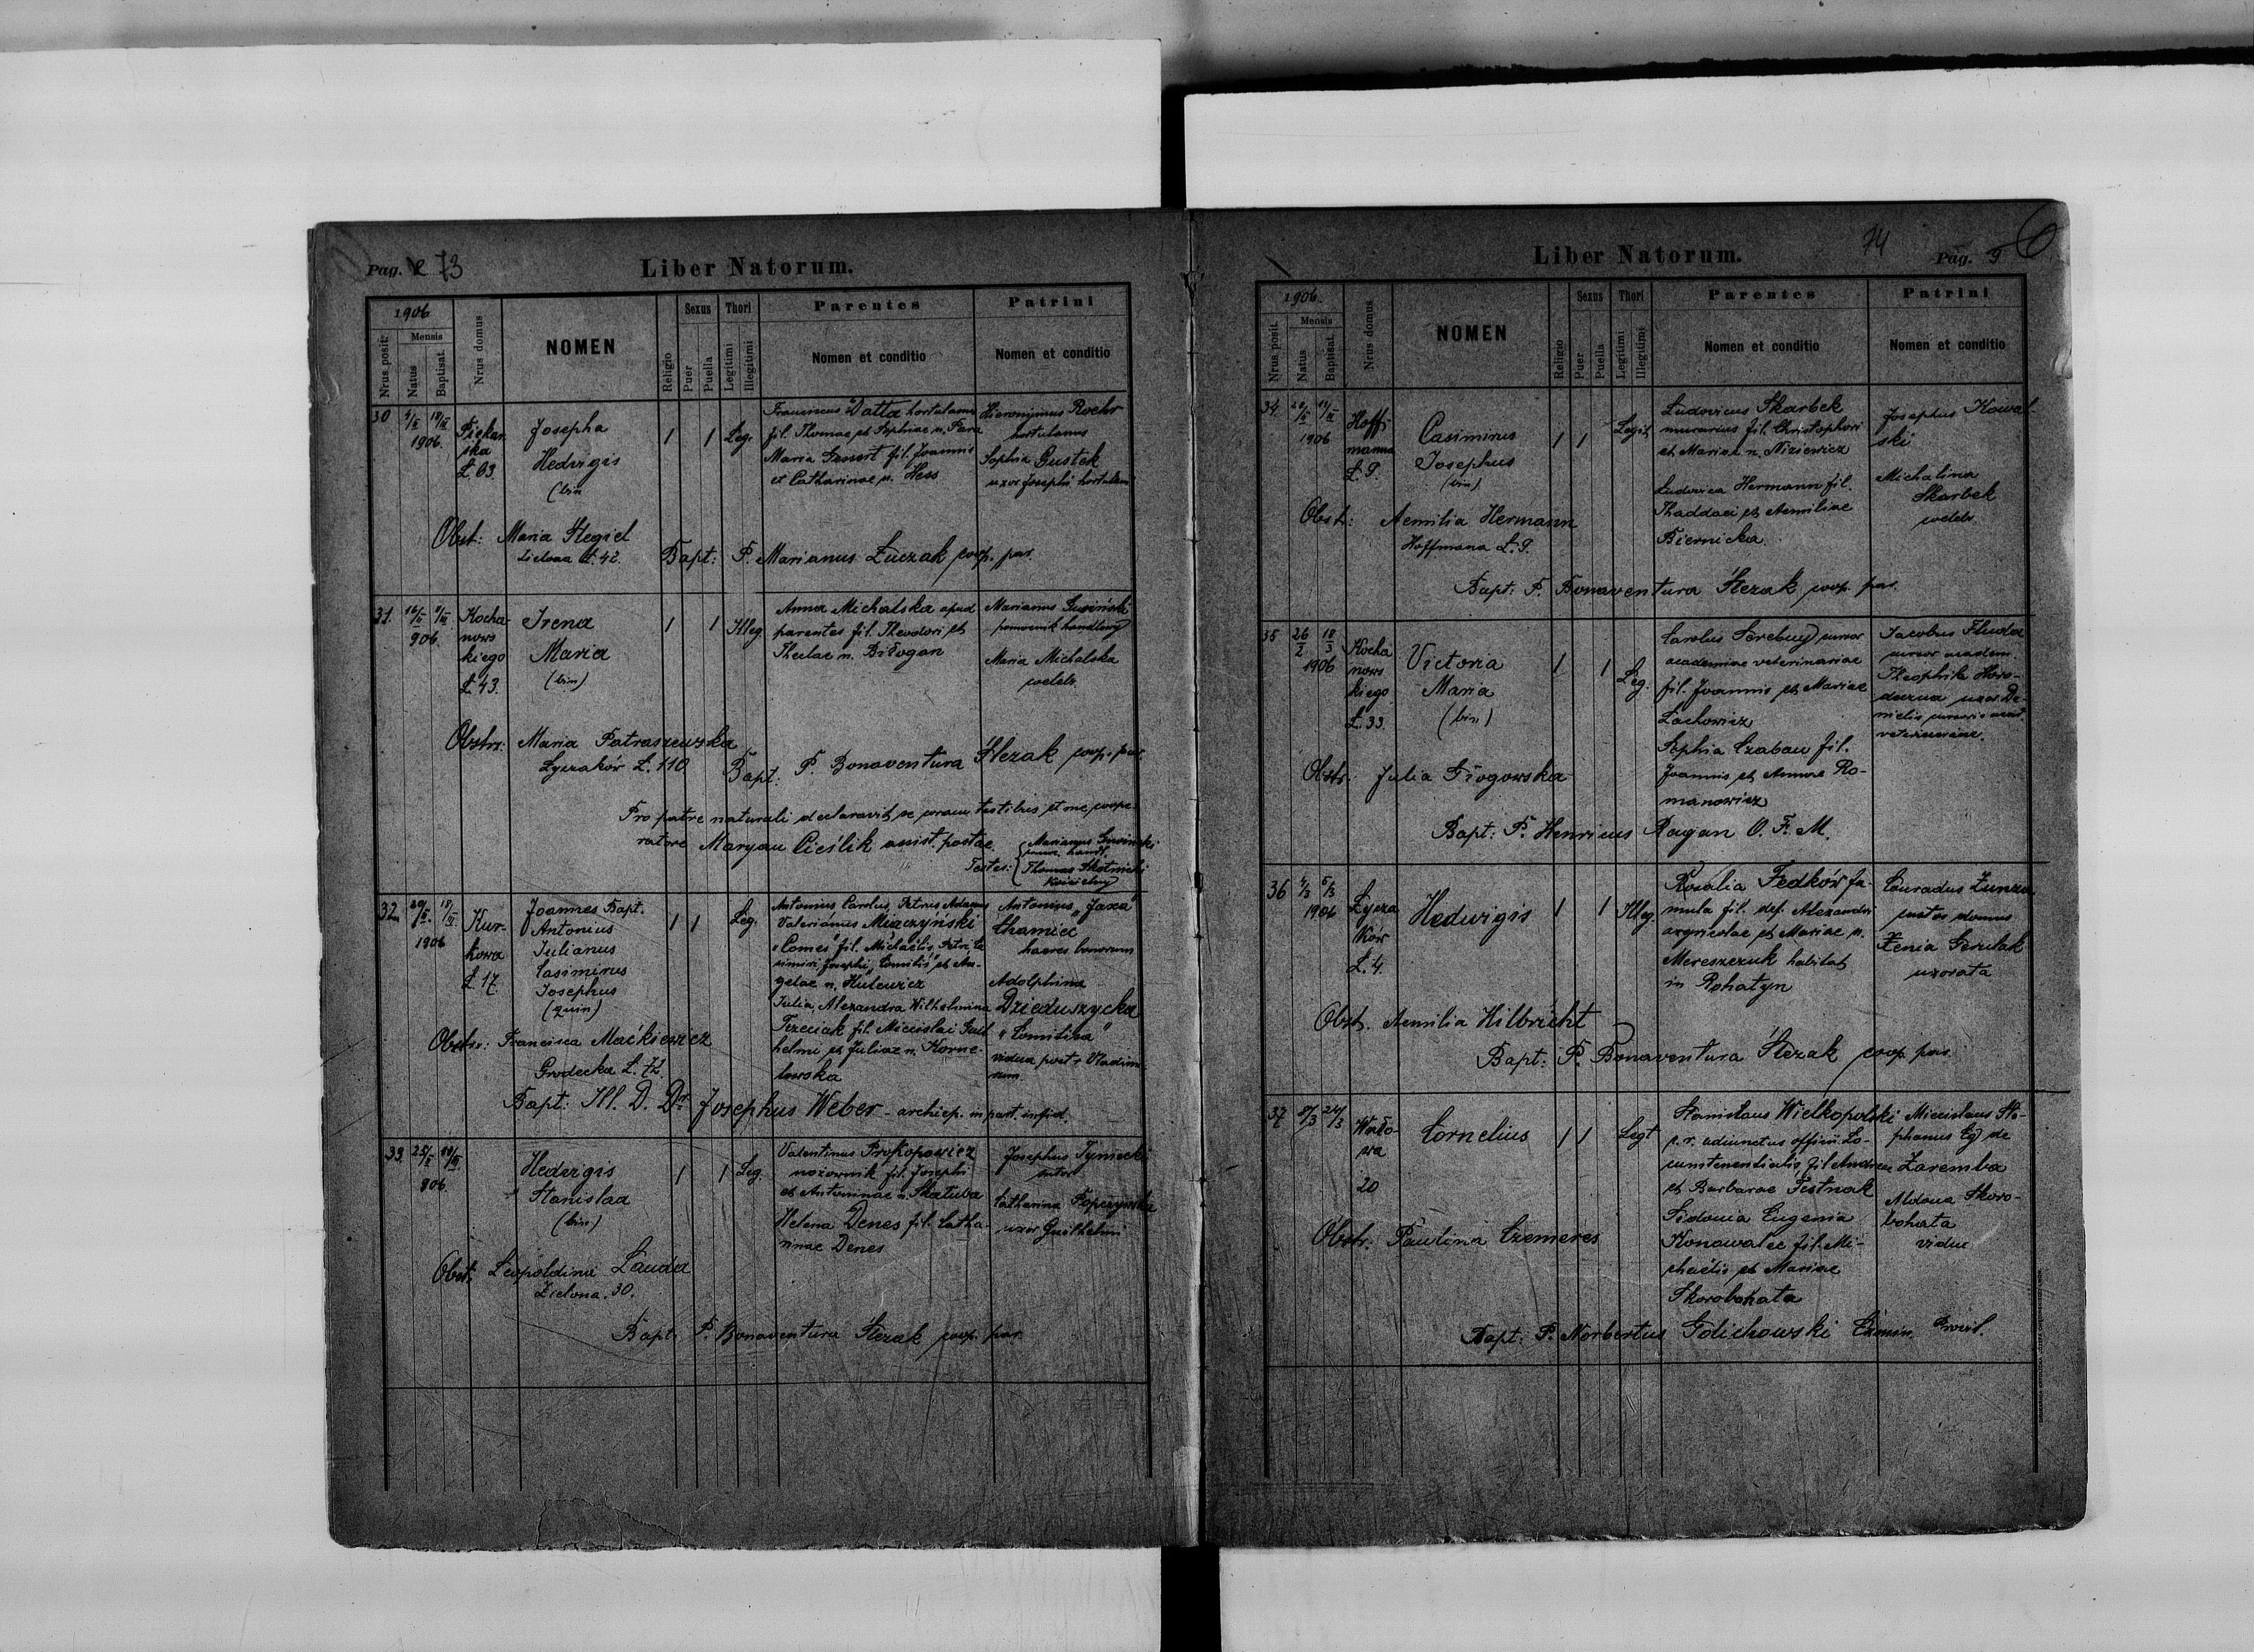 Pag. 73
Liber Natorum.
1906
Nrus posit.
Mensis
Natus
Baptisat.
Nrus domus
NOMEN
Religio
Sexus
Puer
Puella
Thori
Legitimi
Illegitimi
Parentes
Nomen et conditio
Patrini
Nomen et conditio
30
1906.
Piekar
ska
Ł 63.
Josepha
Hedvigis
(bin
1 1 Leg.
Franciscus Datta hortulanus
fil. Thomae et Sophiae n. Para
Maria Genert fil. Joannis
et Catharinae n. Hess
Hieronymus Roehr
hortulanus
Sophia Gustek
uxor Josephi hortulani
Obst: Maria Stegiel
Zielona Ł. 42.
Bapt: P. Marianus Łuczak coop. par.
31.
906.
Kocha
nows
kiego
Ł 43.
Irena
Maria
(bin)
1 1 Illeg.
Anna Michalska apud
parentes fil. Theodori et
Theclae n. Biłogan
Marianus Gusiński
pomocnik handlowy
Maria Michalska
coelebs
Obstr: Maria Patraszewska
Łyczaków Ł. 110
Bapt: P. Bonaventura Ślezak coop. par.
Pro patre naturali declaravit se coram testibus et me coope
ratore Maryan Cieślik assist. postae.
Testes: Marianus Gusiński
pomoc. handl.
Thomas Skotnicki
Kościelny
32.
1906
Kur-
kowa
Ł 17.
Joannes Bapt.
Antonius
Julianus
Casimirus
Josephus
(quin)
1 1 Leg.
Antonius Carolus, Petrus Adamus
Valerianus Miączyński
"Comes" fil. Michaëlis, Petri, Ca
simiri Josephi "Comitis" et An-
gelae n. Hulewicz
Julia, Alexandra Wilhelmina
Trzeciak fil. Miecislai Guil
helmi et Juliae n. Korne
lowska
Antonius "Jaxa"
Chamiec
haeres bonorum
Adolphina
Dzieduszycka
"Comitissa"
vidua post Vladimi
rum.
Obstr: Francisca Maćkiewicz
Grodecka Ł. 72.
Bapt: Ill. D. Dr. Josephus Weber - archiep. in part. infid.
33.
906.
Hedvigis
Stanislaa
(bin)
1 1 Leg.
Valentinus Prokopowicz
nożownik fil. Josephi
et Antoninae n. Skatuba
Helena Denes fil. Catha-
rinae Denes
Josephus Tyniecki
sutor
Catharina Topczynska
uxor Guilhelmi
Obst: Leopoldina Lauda
Zielona 30.
Bapt: P. Bonaventura Ślezak coop. par.
74
Liber Natorum.
Pag. 9
1906.
Nrus posit.
Mensis
Natus
Baptisat.
Nrus domus
NOMEN
Religio
Sexus
Puer
Puella
Thori
Legitimi
Illegitimi
Parentes
Nomen et conditio
Patrini
Nomen et conditio
34.
1906
Hoff-
manna
Ł. 9.
Casimirus
Josephus
(bin)
1 1 Legit.
Ludovicus Skarbek
murarius fil. Christophori
et Mariae n. Niziewicz
Ludovica Hermann fil.
Thaddaei et Aemiliae
Biernicka.
Josephus Kowal
ski
Michalina
Skarbek
coelebs
Obst: Aemilia Hermann
Hoffmana Ł. 9.
Bapt: P. Bonaventura Ślezak coop. par.
35
26/2 18/3
1906
Kocha
nows
kiego
Ł. 33.
Victoria
Maria
(bin)
1 1 Leg.
Carolus Serebuy cursor
academiae veterinariae
fil. Joannis et Mariae
Lachowicz
Sophia Czaban fil.
Joannis et Annae Ro-
manowicz
Jacobus Hluda
cursor academ.
Theophila Horo-
deczna uxor Da-
nielis cursoris acad.
veterinariae.
Obstr: Julia Głogowska
Bapt: P. Henricus Ragan O. F. M.
36
4/3 5/3
1906
Łycza
ków
Ł. 4.
Hedwigis
1 1 Illeg.
Rosalia Fedków fa-
mula fil. def. Alexandri
argricolae et Mariae n.
Mereszczuk habitat
in Rohatyn
Conradus Zunza
custos domus
Xenia Gerulak
uxorata
Obst. Aemilia Hilbricht
Bapt: P. Bonaventura Ślezak coop. par.
37
8/3 24/3
Wało-
wa
20
Cornelius
1 1 Legt
Stanislaus Wielkopolski
c. r. adiunctus officii Lo-
cumtenentialis, fil. Andreae
et Barbarae Testnak
Sidonia Eugenia
Konowalec fil. Mi-
chaëlis et Mariae
Skorobohata
Miecislaus Ste-
phanus Eq de
Zaremba
Aldona Skoro-
bohata
vidua
Obstr. Paulina Czemeres
Bapt: P. Norbertus Golichowski Exmin. Provl.